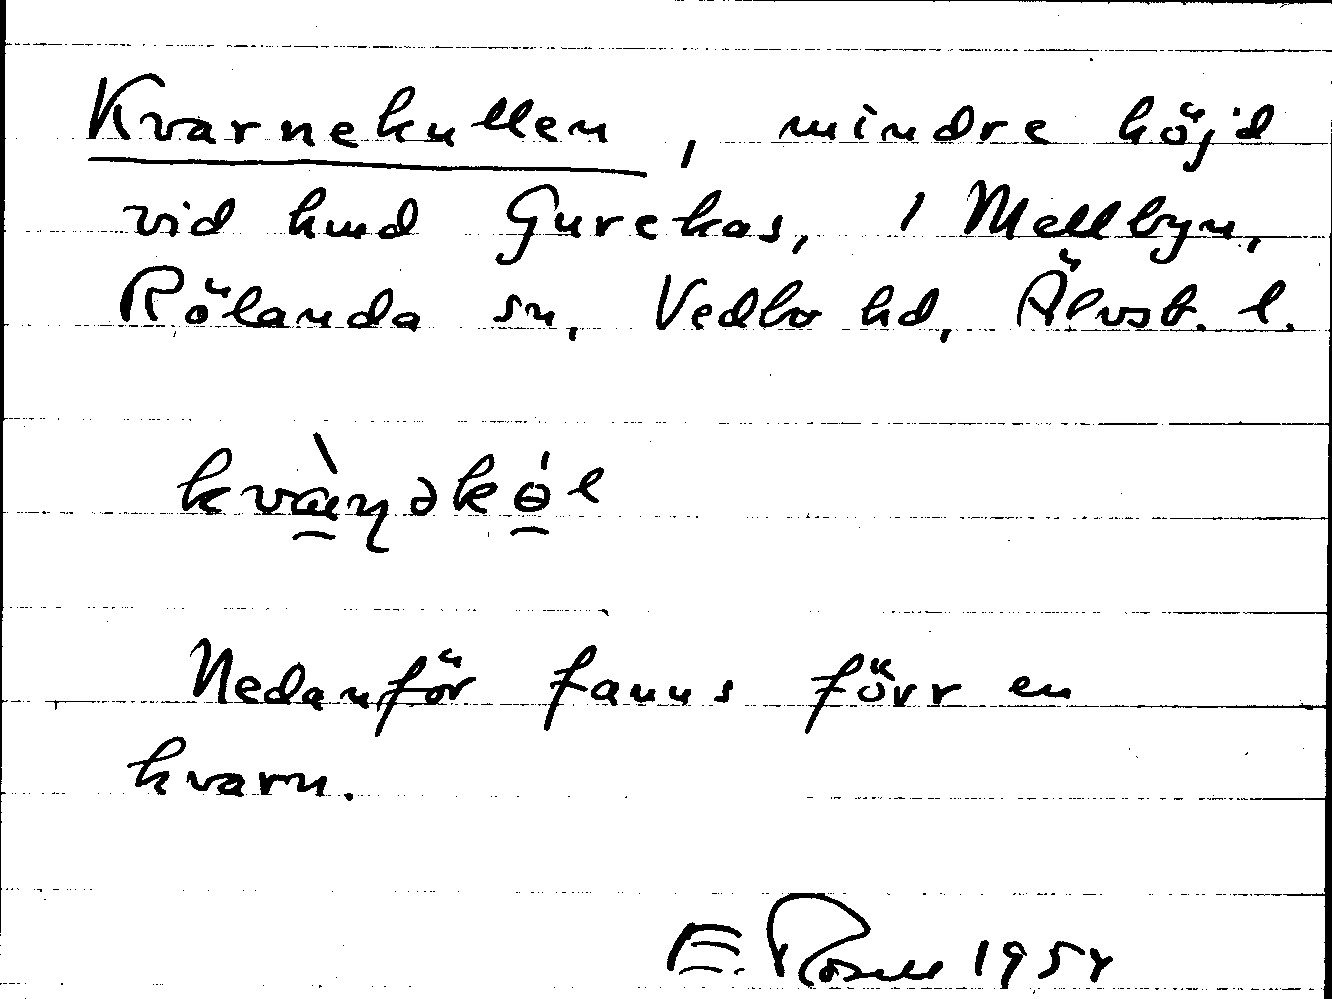 Kvarnekullen, mindre höjd
vid hmd Gurekas, 1 Mellbyn,
Rölanda sn, Vedbo hd, Älvsb. l.
Nedanför fanns förr en
kvarn.
E. Rosell 195